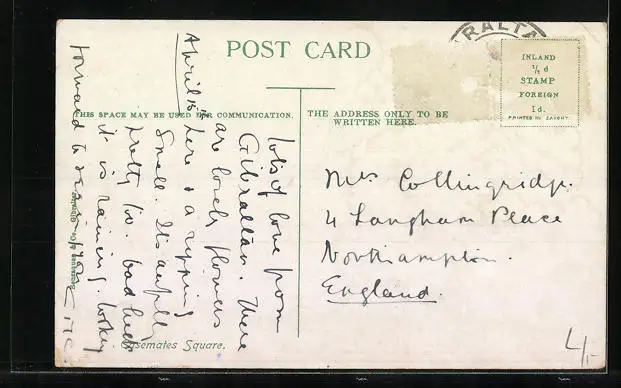 POST CARD
RALTA
INLAND
½ d
STAMP
FOREIGN
1d.
PRINTED IN SAXONY
THIS SPACE MAY BE USED FOR COMMUNICATION.
THE ADDRESS ONLY TO BE
WRITTEN HERE.
April 15th
lots of love from
Gibraltar. There
are lovely flowers
here & a ripping
smell. Its awfully
pretty too. bad luck
it is raining.
forward to
Mrs Collingridge.
4 Langham Place
Northampton.
England.
Casemates Square.
4/-